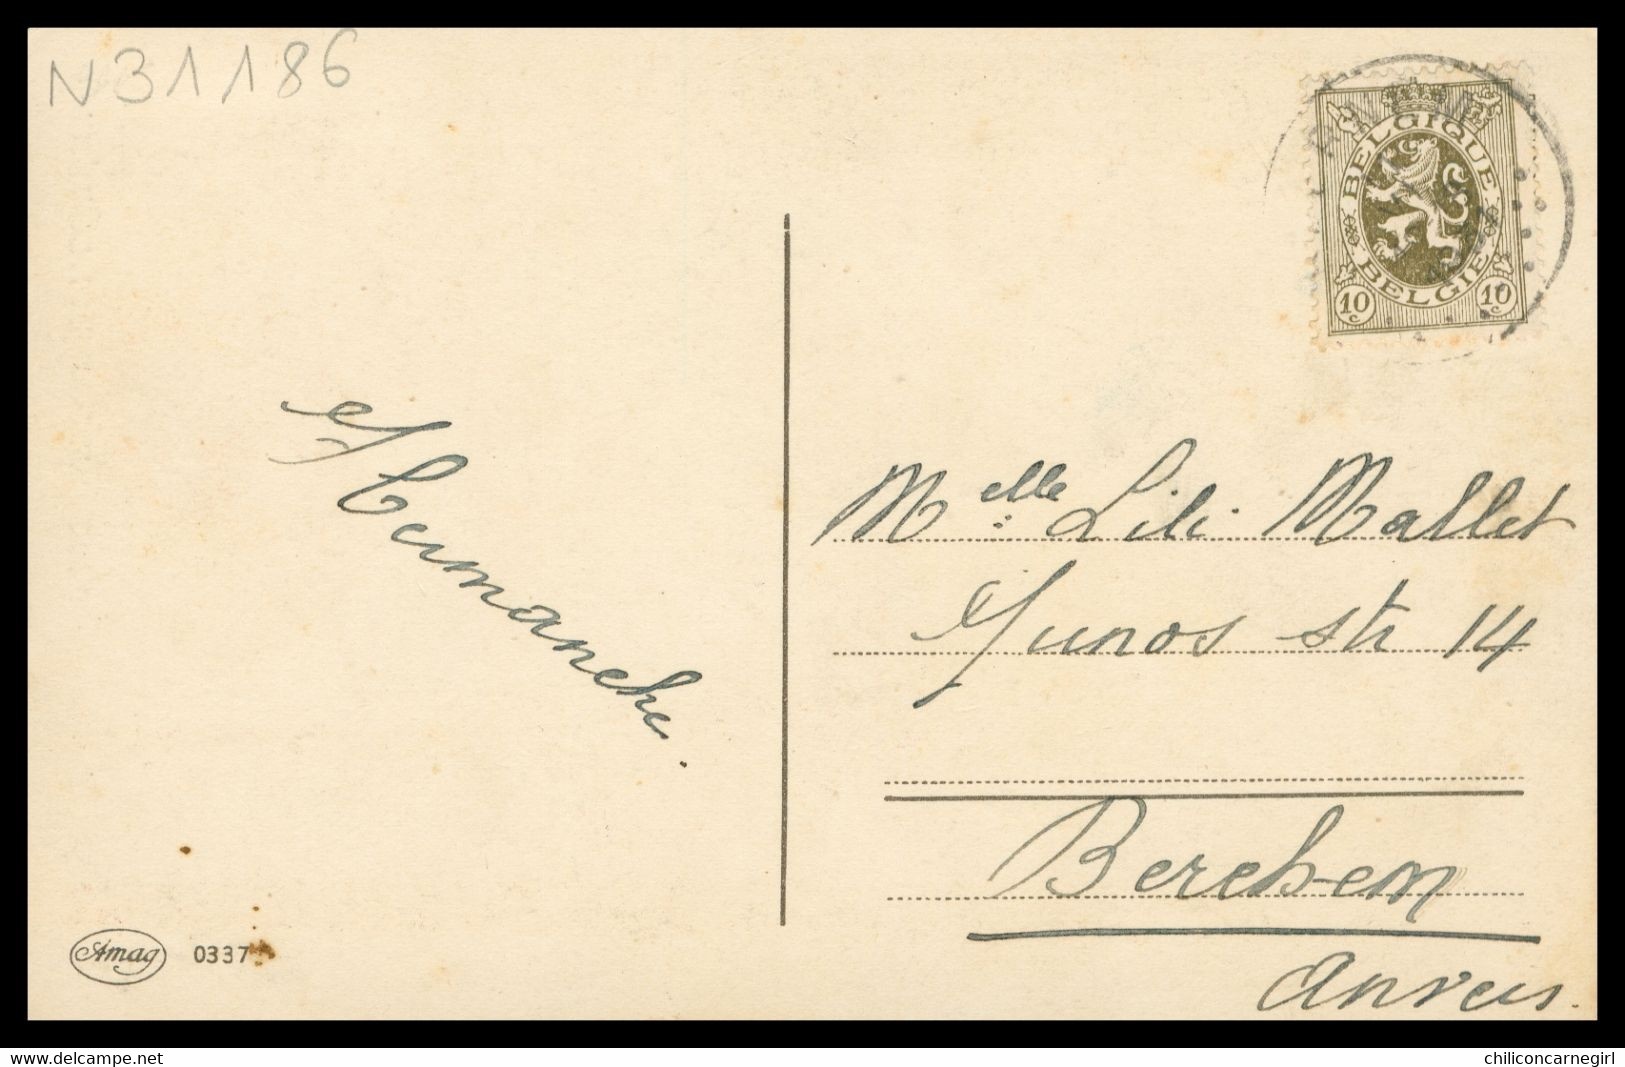 N31186
BELGIQUE
BELGIE
10c 10c
Hermanche.
Melle Lili Mallet
Junos str 14
Berchem
Anvers.
Amag 0337
www.delcampe.net
chiliconcarnegirl